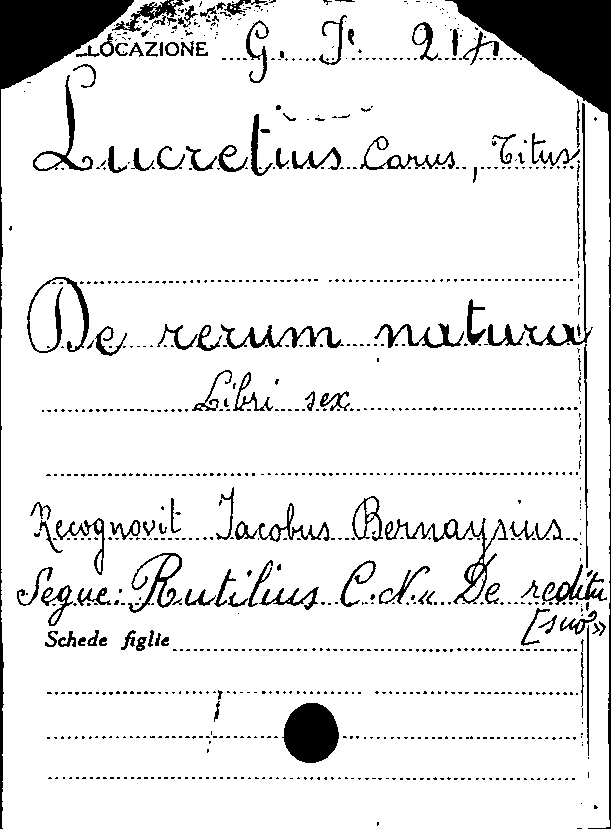 LOCAZIONE G. F. 214
Lucretius Carus, Titus
De rerum natura
Libri sex
Recognovit Jacobus Bernaysius
Segue: Rutilius C. N. « De reditu
[suo »
Schede figlie